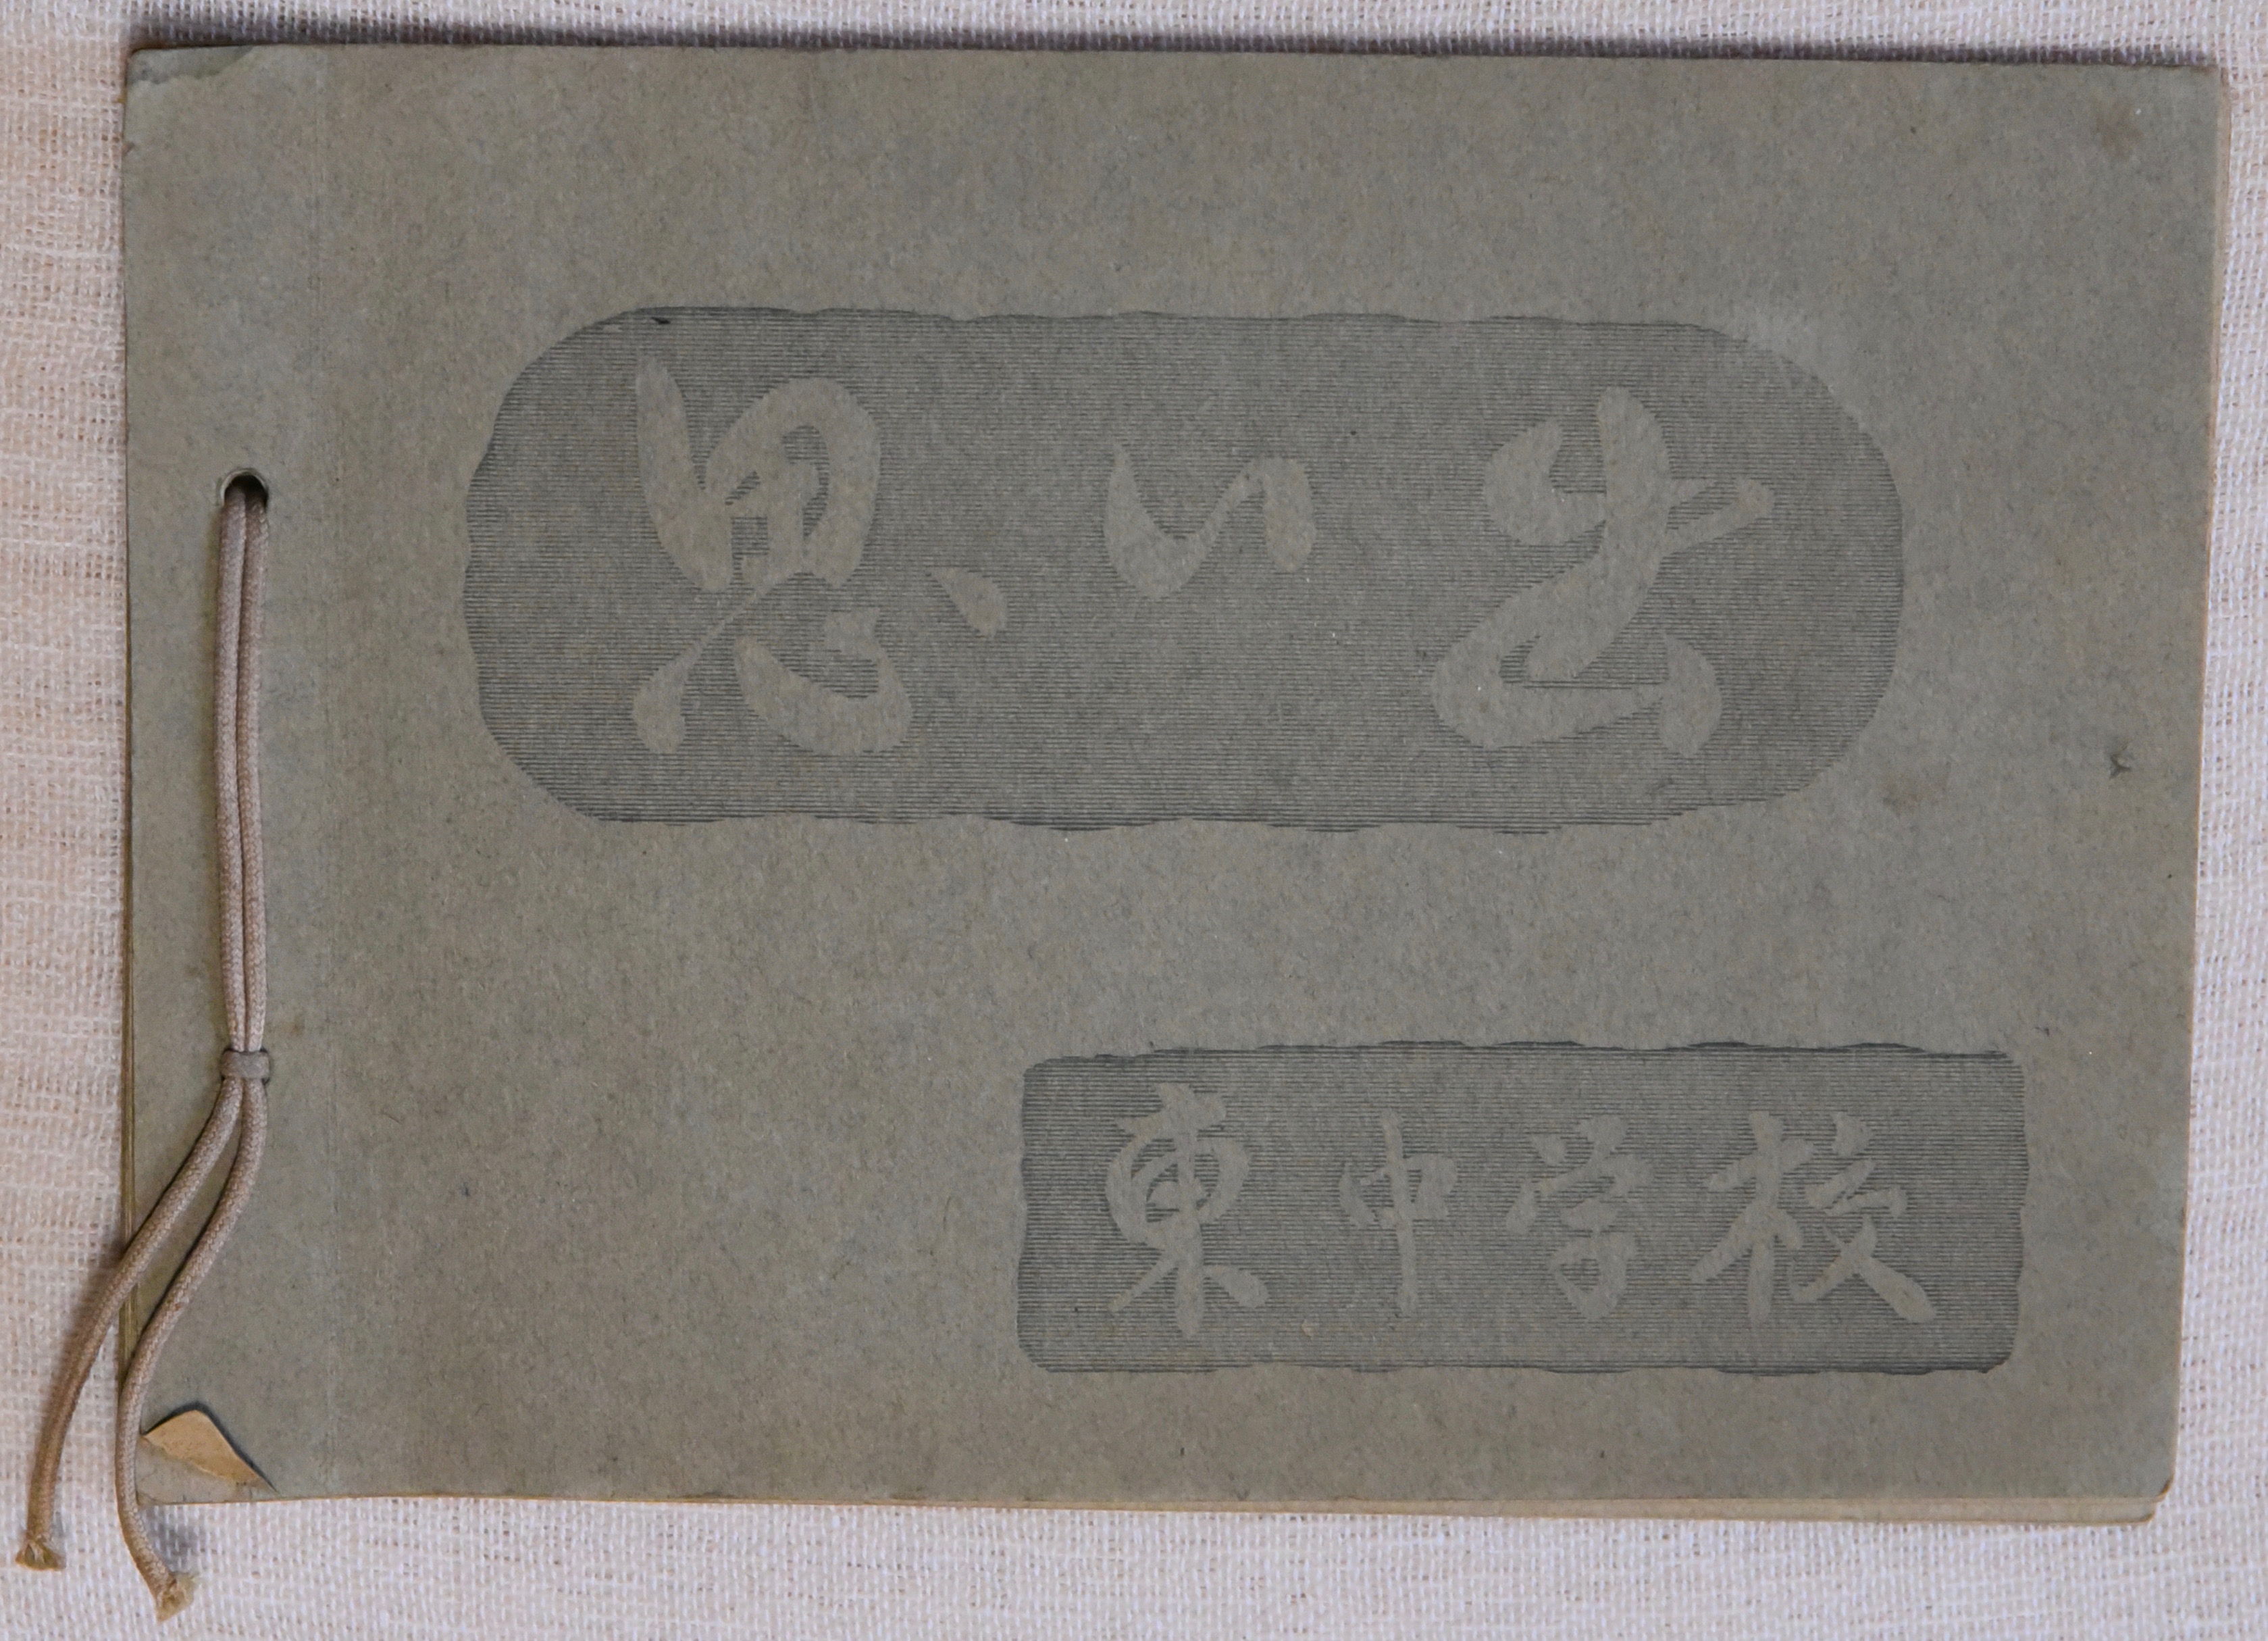 思い出
東中学校